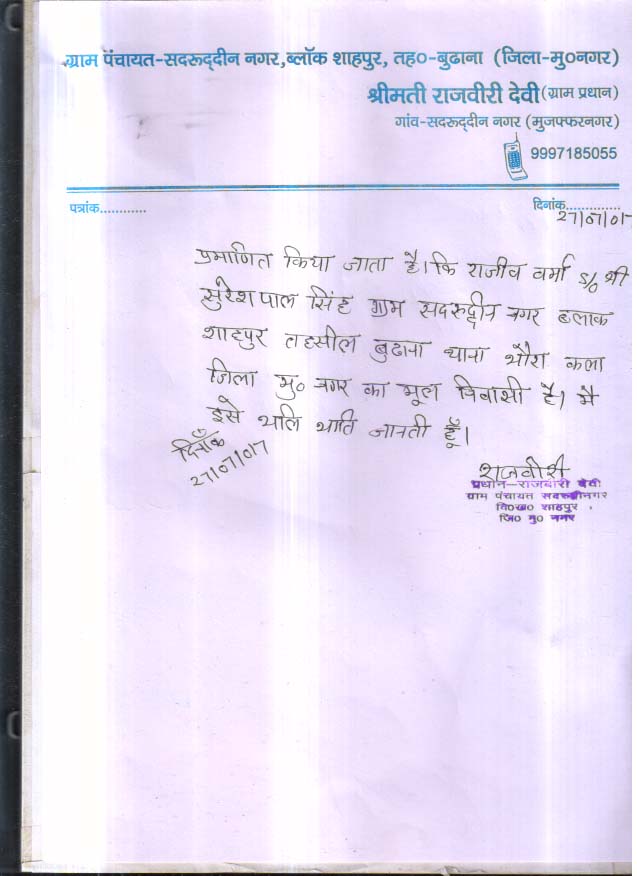 ग्राम पंचायत-सदरूद्दीन नगर,ब्लॉक शाहपुर, तह०-बुढाना (जिला-मु०नगर)
श्रीमती राजवीरी देवी (ग्राम प्रधान)
गांव-सदरूद्दीन नगर (मुजफ्फरनगर)
9997185055
पत्रांक............ दिनांक..............
27/07/07
प्रमाणित किया जाता है। कि राजीव वर्मा s/o श्री
सुरेशपाल सिंह ग्राम सदरुद्दीन नगर ब्लाक
शाहपुर तहसील बुढाना थाना भौरा कला
जिला मु० नगर का मूल निवासी है। मै
इसे भलि भाति जानती हूँ।
दिनाँक
27/07/07
राजवीरी
प्रधान-राजवीरी देवी
ग्राम पंचायत सदरुद्दीनगर
वि०ख० शाहपुर
जि० मु० नगर